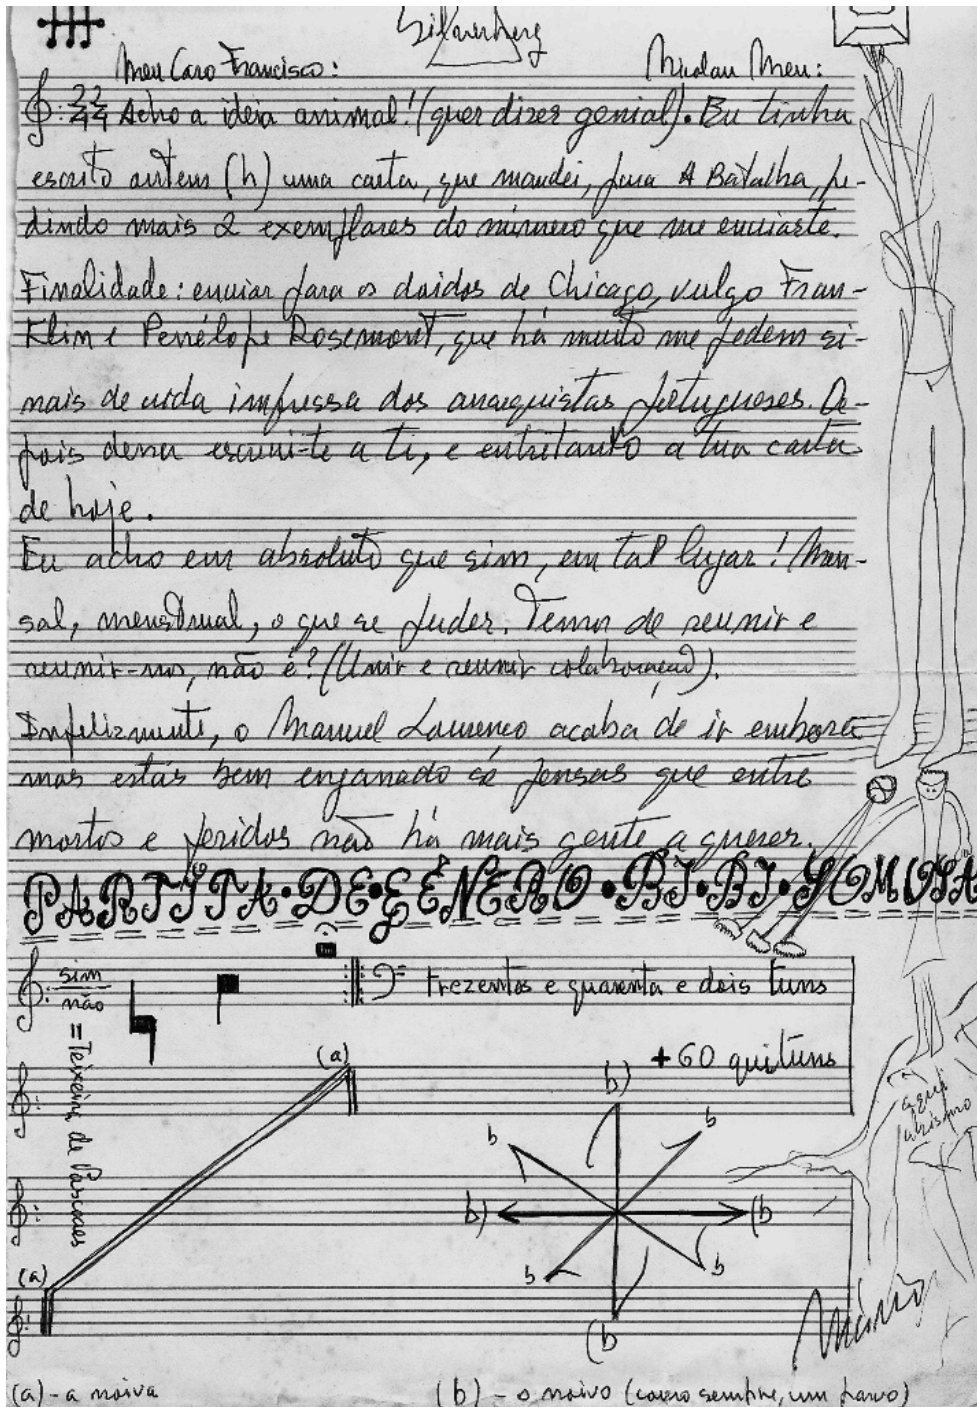 Silverberg
Meu Caro Francisco: Nicolau Meu:
22 22
44 44
Acho a ideia animal! (quer dizer genial). Eu tinha
escrito ontem (h) uma carta, que mandei, para A Batalha, pe-
dindo mais 2 exemplares do número que me enviaste.
Finalidade: enviar para os doidos de Chicago, vulgo Fran-
Klin e Penélope Rosemont, que há muito me pedem si-
nais de vida impressa dos anarquistas portugueses. De-
pois dessa escrevi-te a ti, e entretanto a tua carta
de hoje.
Eu acho em absoluto que sim, em tal lugar! Men-
sal, menstrual, o que se puder. Temos de reunir e
reunir-nos, não é? (Unir e reunir colaboração).
Infelizmente, o Manuel Lourenço acaba de ir embora
mas estás bem enganado se pensas que entre
mortos e feridos não há mais gente a querer.
PARTITA•DE•GÉNERO•BI•BI•SOMOSA
sim
não
=Teixeira de Pascoaes
trezentos e quarenta e dois tuns
+60 quituns
(a)
(a)
b)
b
b
b)
(b
b
b
(b
aqui
abismo
Mário
(a)-a noiva
(b) - o noivo (como sempre, um parvo)